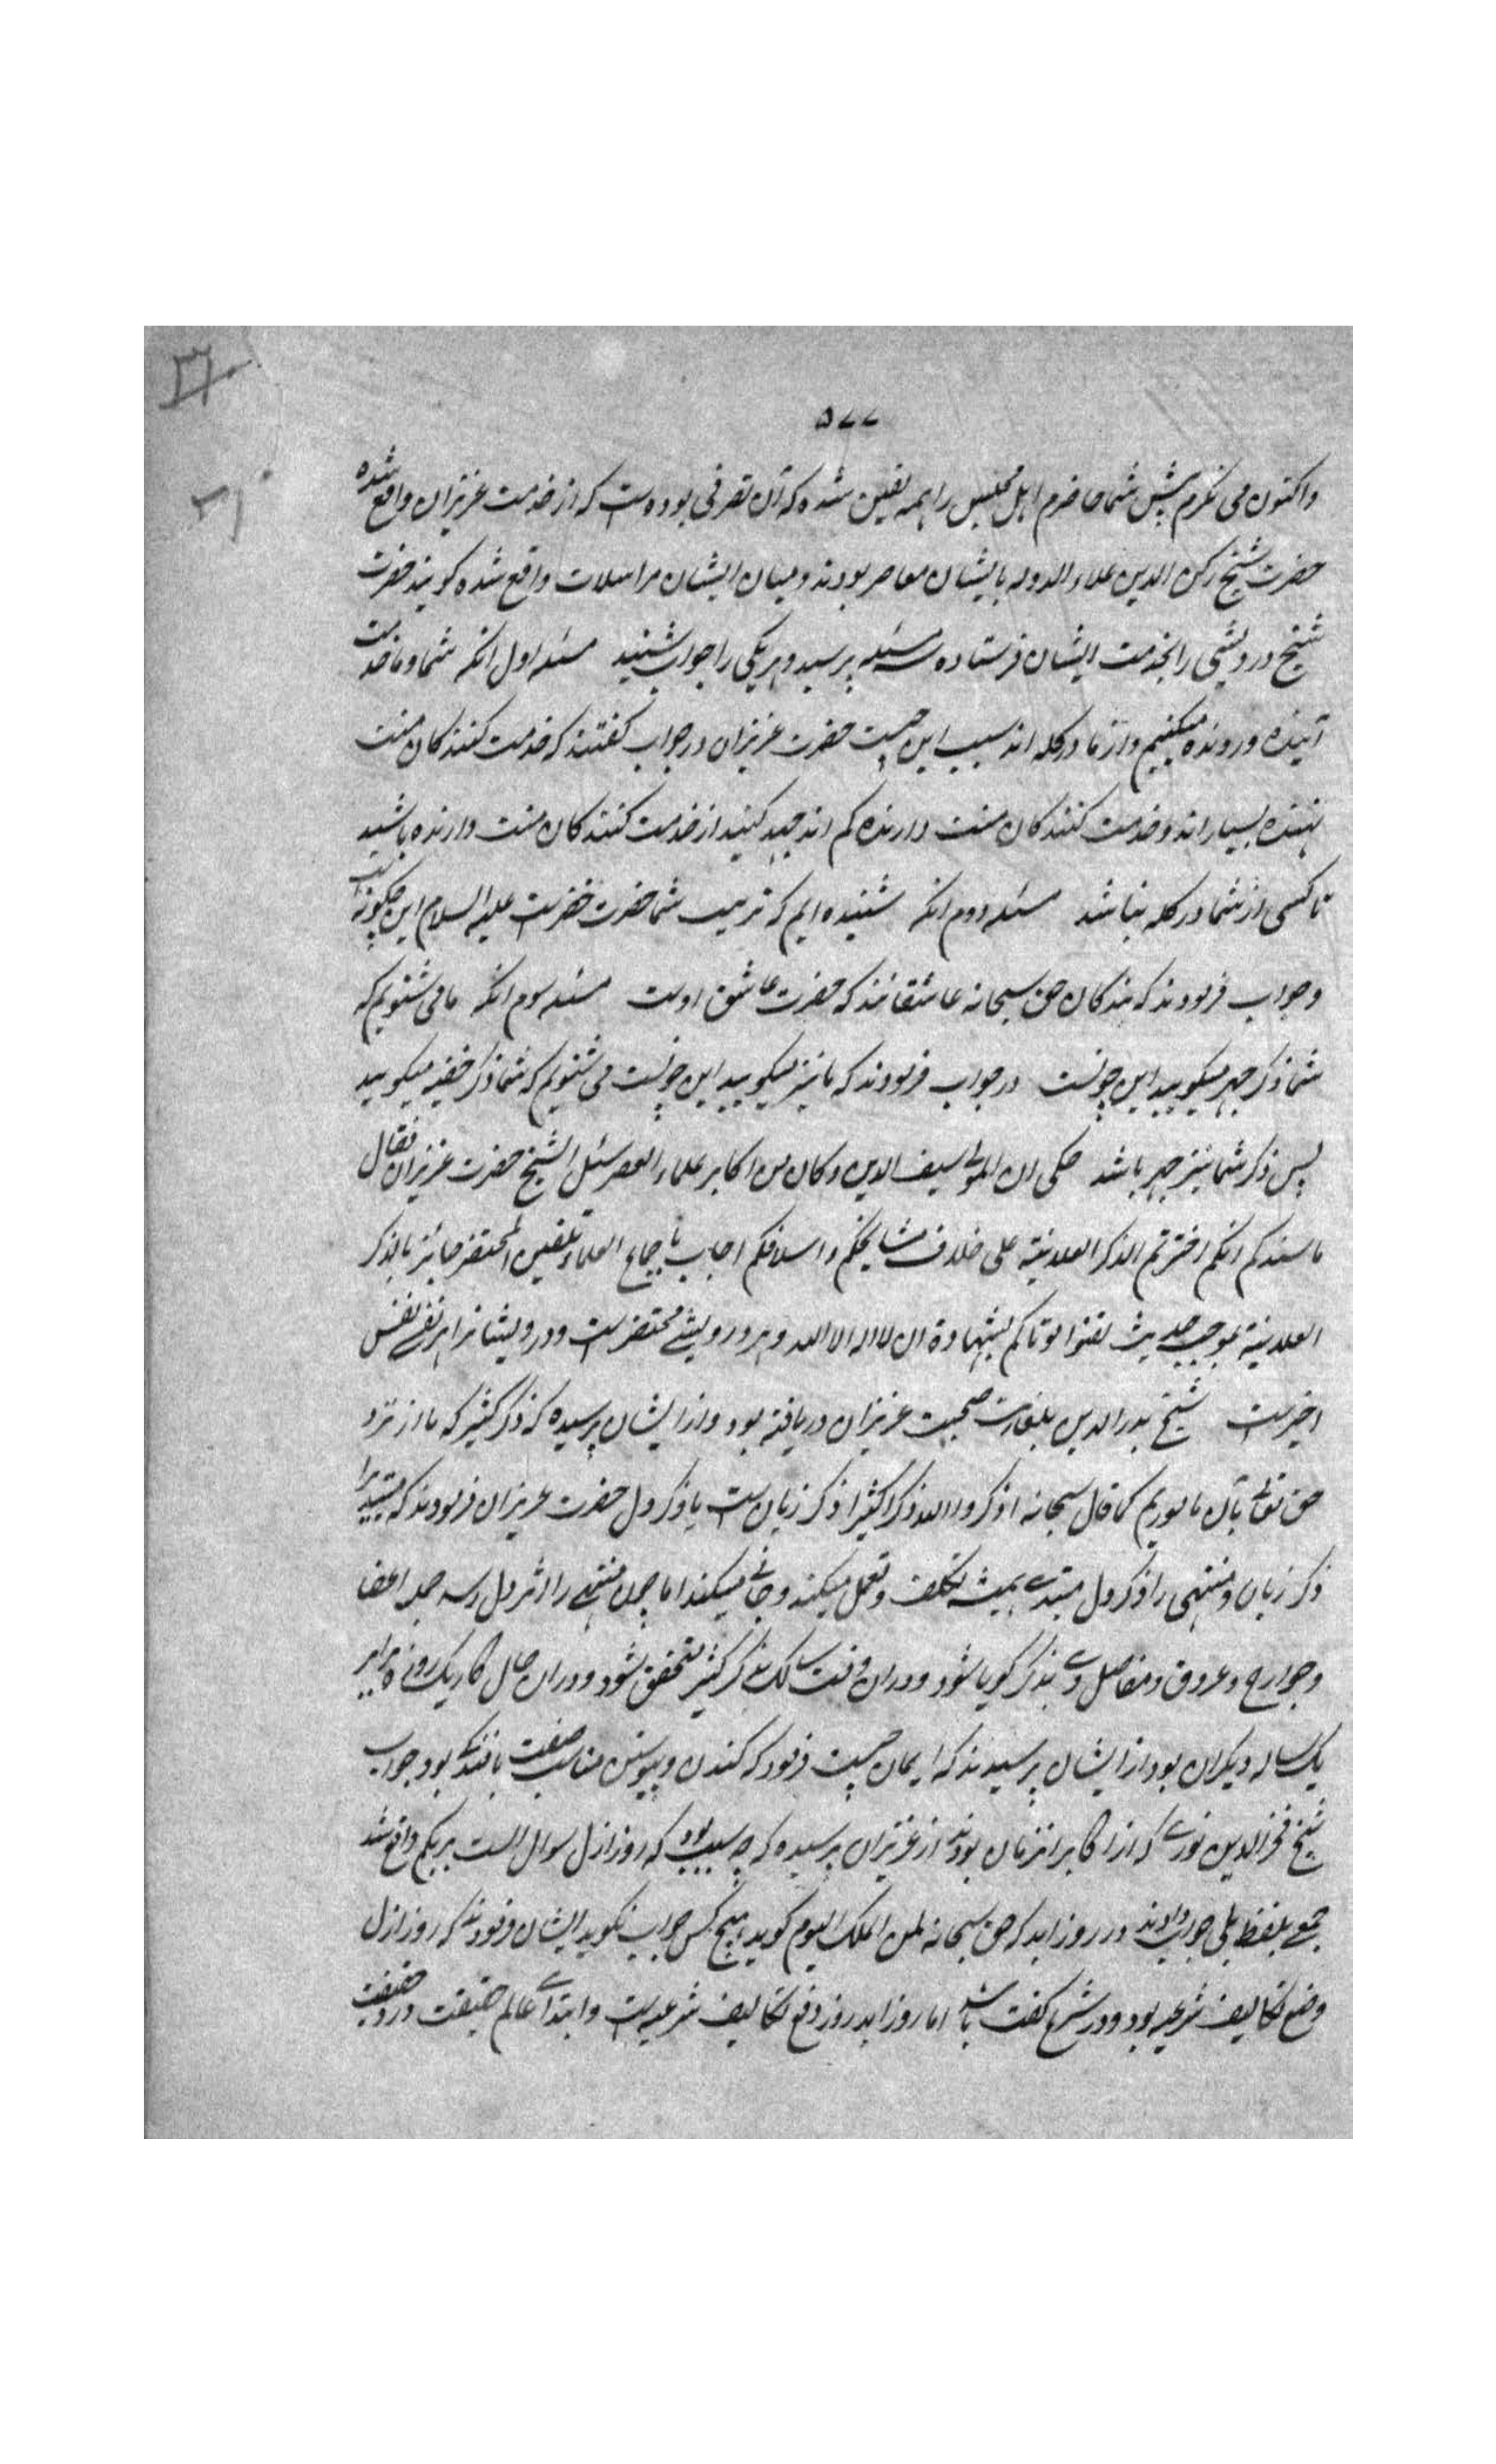 ۵۷۷
واکنون می نکرم پیش شما حاضرم اهل مجلس را همه یقین شده که آن تصرفی بوده است که از خدمت عزیزان واقع شده
حضرت شیخ رکن الدین علاء الدوله با یشان معاصر بودند و میان ایشان مراسلات واقع شده کویند حضرت
شیخ درویشی را بخدمت ایشان فرستاده سه مسئله پرسید و هر یکی را جواب شنید مسئله اول انکه شما و ما خدمت
آینده و رونده میکنیم و از ما در کله اند سبب این چیست حضرت عزیزان در جواب کفتند که خدمت کنندکان منت
نهنده بسیار اند و خدمت کنندکان منت دارنده کم اند جهد کنید از خدمت کنندکان منت دارنده باشید
تا کسی از شما در کله نباشد مسئله دوم انکه شنیده ایم که تربیت شما حضرت خضرست علیه السلام این چکونه است
وجواب فرمودند که بندکان حق سبحانه عاشقانند که خضرت عاشق اوست مسئله سوم انکه ما می شنویم که
شما ذکر جهر میکویید این چونست در جواب فرمودند که ما نیز میکویید این چونست می شنویم که شما ذکر خفیه میکویید
پس ذکر شما نیز جهر باشد حکی ان المولی سیف الدین وکان من اکابر علماء العصر سئل الشیخ حضرت عزیزان فقال
ما سندکم انکم اخترتم الذکر العلانیة علی خلاف مشایخکم واسلافکم اجاب باجماع العلماء تلقین المحتضر جایز بالذکر
العلانیة بموجب حدیث لقنوا موتاکم بشهادة ان لا اله الا الله و هر درویشے محتضرست ودرویشانرا هر نفے نفس
اخیرست شیخ بدر الدین بلغارست صحبت عزیزان دریافته بود واز ایشان پرسیده که ذکر کثیر که ما از نزد
حق تعالے بآن ماموریم کما قال سبحانه اذکروا الله ذکرا کثیرا ذکر زبان ست یا ذکر دل حضرت عزیزان فرمودند که مبتدیرا
ذکر زبان و منتهی را ذکر دل مبتدے همیشه تکلف و تعمل میکند و جانے میکند اما چون منتهے را اثر بدل رسد جمله اعضا
وجوارح و عروق و مفاصل وے بذکر کویا شود ودران وقت سالک بذکر کثیر متحقق شود ودران حال کار یکروزه برابر
یکساله دیکران بود از ایشان پرسیدند که ایمان چیست فرمود که کندن و پیوستن مناسب صفت بافندکے بود جواب
شیخ فخر الدین نورے که از اکابر انزمان بودند از عزیزان پرسیده که چه سبب بود که روز ازل سوال الست بربکم واقع شد
جمعے بلفظ بلی جواب دادند ودر روز ابد که حق سبحانه لمن الملک الیوم کوید هیچ کس جواب نکوید ایشان فرمودند که روز ازل
وضع تکالیف شرعیه بود ودر شرع کفت باشد اما روز ابد روز رفع تکالیف شرعیه ست وابتداے عالم حقیقت ودر حقیقت